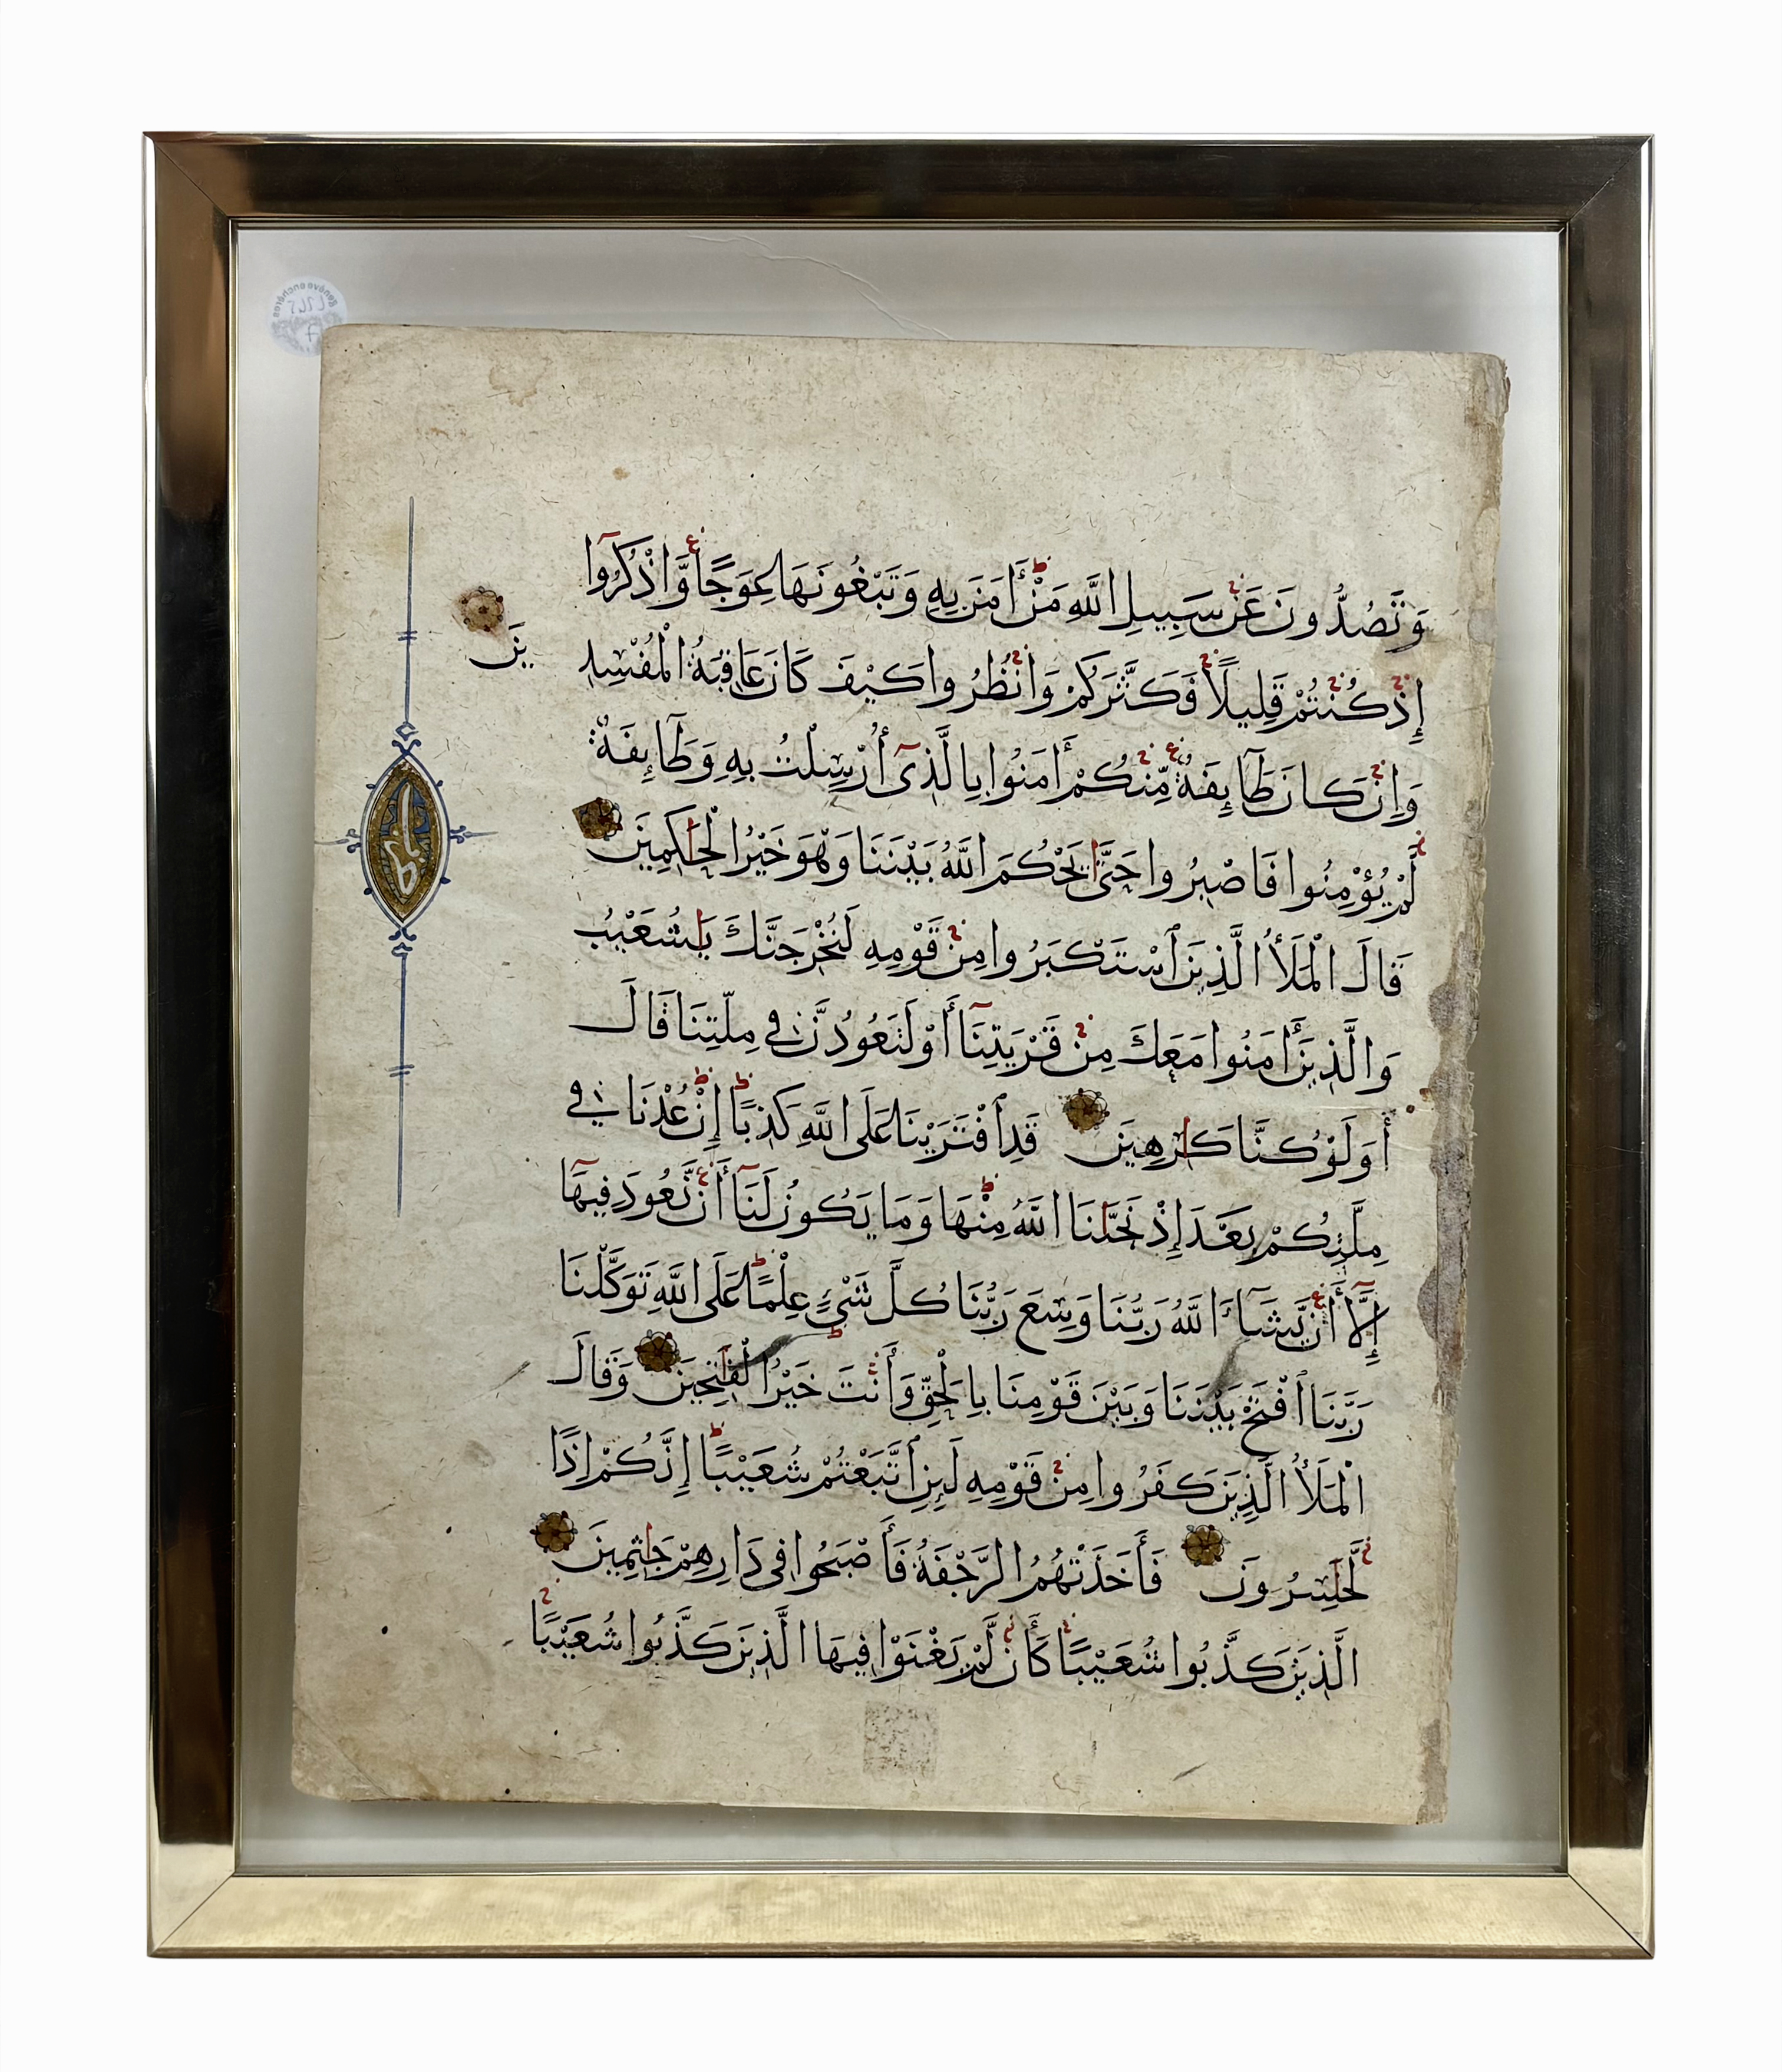 وَتَصُدُّونَ عَنْ سَبِيلِ اللَّهِ مَنْ أَمَنَ بِهِ وَتَبْغُونَهَا عِوَجًا وَّاذْكُرُوا
إِذْ كُنْتُمْ قَلِيلًا فَكَثَّرَكُمْ وَانْظُرُوا كَيْفَ كَانَ عَاقِبَةُ الْمُفْسِدِ
ينَ
وَإِنْ كَانَ طَآئِفَةٌ مِّنْكُمْ أَمَنُوا بِالَّذِىٓ أُرْسِلْتُ بِهِ وَطَآئِفَةٌ
لَّمْ يُؤْمِنُوا فَاصْبِرُوا حَتَّىٰ يَحْكُمَ اللَّهُ بَيْنَنَا وَهْوَ خَيْرُ الْحَٰكِمِينَ
قَالَ الْمَلَأُ الَّذِينَ ٱسْتَكْبَرُوا مِنْ قَوْمِهِ لَنُخْرِجَنَّكَ يَٰشُعَيْبُ
وَالَّذِينَ أَمَنُوا مَعَكَ مِنْ قَرْيَتِنَآ أَوْ لَتَعُودُنَّ فِي مِلَّتِنَا قَالَ
أَوَلَوْ كُنَّا كَٰرِهِينَ قَدِ ٱفْتَرَيْنَا عَلَى اللَّهِ كَذِبًا إِنْ عُدْنَا فِي
مِلَّتِكُمْ بَعْدَ إِذْ نَجَّٰنَا اللَّهُ مِنْهَا وَمَا يَكُونُ لَنَآ أَنْ نَّعُودَ فِيهَآ
إِلَّآ أَنْ يَّشَآءَ اللَّهُ رَبُّنَا وَسِعَ رَبُّنَا كُلَّ شَىْءٍ عِلْمًا عَلَى اللَّهِ تَوَكَّلْنَا
رَبَّنَا ٱفْتَحْ بَيْنَنَا وَبَيْنَ قَوْمِنَا بِالْحَقِّ وَأَنْتَ خَيْرُ الْفَٰتِحِينَ وَقَالَ
الْمَلَأُ الَّذِينَ كَفَرُوا مِنْ قَوْمِهِ لَئِنِ ٱتَّبَعْتُمْ شُعَيْبًا إِنَّكُمْ إِذًا
لَّخَٰسِرُونَ فَأَخَذَتْهُمُ الرَّجْفَةُ فَأَصْبَحُوا فِى دَارِهِمْ جَٰثِمِينَ
الَّذِينَ كَذَّبُوا شُعَيْبًا كَأَنْ لَّمْ يَغْنَوْا فِيهَا الَّذِينَ كَذَّبُوا شُعَيْبًا